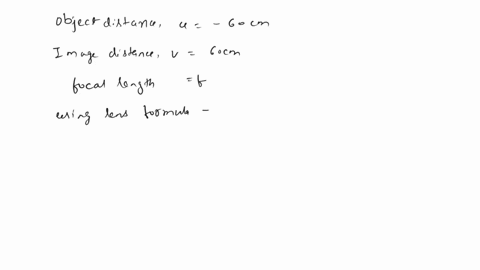 Object distance, u = - 60 cm
Image distance, v = 60cm
focal length = f
using lens formula -